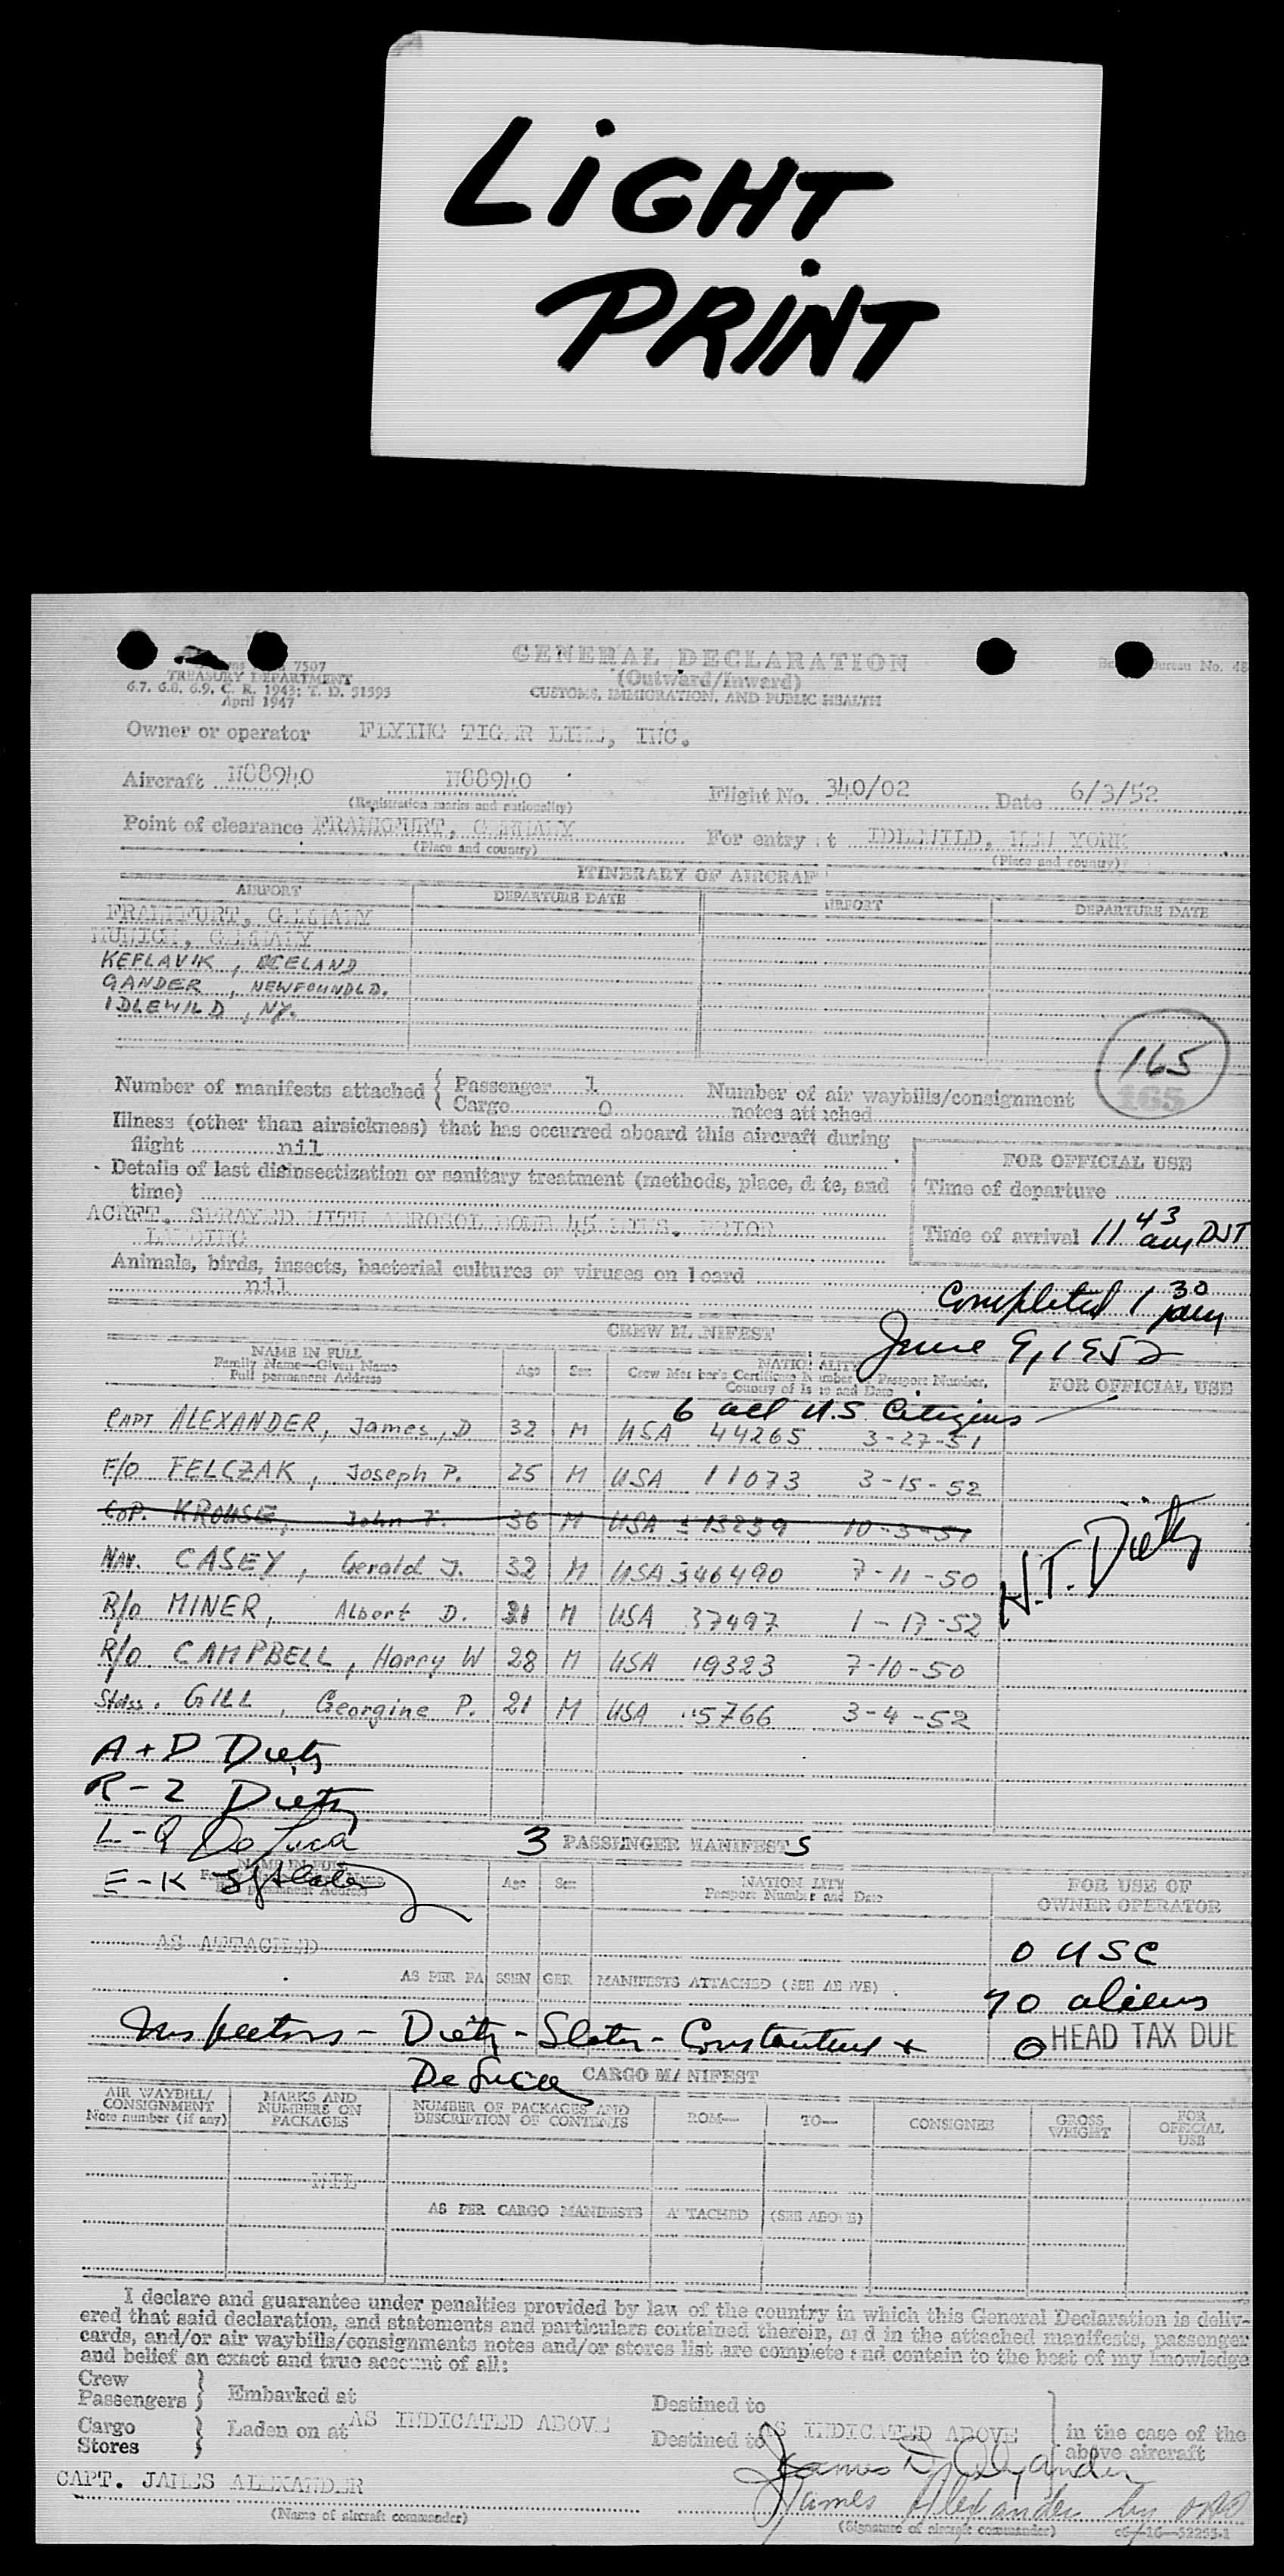 LIGHT
PRINT
7507
TREASURY DEPARTMENT
6.7, 6.8, 6.9, C. R. 1943; T. D. 51595
April 1947
GENERAL DECLARATION
(Outward/Inward)
CUSTOMS, IMMIGRATION, AND PUBLIC HEALTH
Bureau No. 48
Owner or operator FLYING TIGER LINE, INC.
Aircraft N88940 N88940 Flight No. 340/02 Date 6/3/52
(Registration marks and nationality)
Point of clearance FRANKFURT, GERMANY For entry at IDLEWILD, NEW YORK
(Place and country) (Place and country)
ITINERARY OF AIRCRAF
AIRPORT DEPARTURE DATE AIRPORT DEPARTURE DATE
FRANKFURT, GERMANY
MUNICH, GERMANY
KEFLAVIK, ICELAND
GANDER, NEWFOUNDLD.
IDLEWILD, NY.
165
165
Number of manifests attached { Passenger 1 Number of air waybills/consignment
Cargo 0 notes attached
Illness (other than airsickness) that has occurred aboard this aircraft during
flight nil
FOR OFFICIAL USE
Details of last disinsectization or sanitary treatment (methods, place, date, and
time)
Time of departure
ACRFT. SPRAYED WITH AEROSOL BOMB 45 MINS. PRIOR
LANDING
Time of arrival 11 43 am DST
Animals, birds, insects, bacterial cultures or viruses on board
nil
Completed 1 30 pm
June 9, 1952
CREW MANIFEST
NAME IN FULL
Family Name—Given Name
Full permanent Address
Age Sex
NATIONALITY
Crew Member's Certificate Number or Passport Number,
Country of Issue and Date
FOR OFFICIAL USE
6 all U.S. Citizens
CAPT ALEXANDER, James, D 32 M USA 44265 3-27-51
F/O FELCZAK, Joseph P. 25 M USA 11073 3-15-52
COP. KROUSE, John F. 36 M USA 13239 10-3-51
NAV. CASEY, Gerald J. 32 M USA 346490 7-11-50
H.T. Dietz
R/O MINER, Albert D. 21 M USA 37497 1-17-52
R/O CAMPBELL, Harry W 28 M USA 19323 7-10-50
Stdss. GILL, Georgine P. 21 M USA 5766 3-4-52
A + D Dietz
R-Z Dietz
L-Q DeLuca
3 PASSENGER MANIFESTS
E-K
Age Sex
NATIONALITY
Passport Number and Date
FOR USE OF
OWNER OPERATOR
AS ATTACHED
0 USC
AS PER PASSENGER MANIFESTS ATTACHED (SEE ABOVE)
70 aliens
Inspectors - Dietz - Slater - Constantine +
0 HEAD TAX DUE
DeLuca
CARGO MANIFEST
AIR WAYBILL/
CONSIGNMENT
Note number (if any)
MARKS AND
NUMBERS ON
PACKAGES
NUMBER OF PACKAGES AND
DESCRIPTION OF CONTENTS
ROM—
TO—
CONSIGNEE
GROSS
WEIGHT
FOR
OFFICIAL
USE
AS PER CARGO MANIFESTS ATTACHED (SEE ABOVE)
I declare and guarantee under penalties provided by law of the country in which this General Declaration is deliv-
ered that said declaration, and statements and particulars contained therein, and in the attached manifests, passenger
cards, and/or air waybills/consignments notes and/or stores list are complete and contain to the best of my knowledge
and belief an exact and true account of all:
Crew
Passengers } Embarked at Destined to
Cargo
Stores } Laden on at AS INDICATED ABOVE Destined to AS INDICATED ABOVE
in the case of the
above aircraft
James D Alexander
CAPT. JAMES ALEXANDER
James Alexander by
(Name of aircraft commander) (Signature of aircraft commander) 16—52255-1